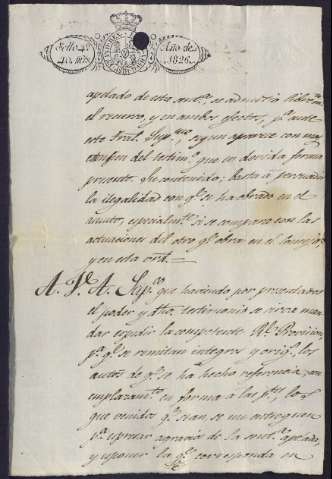 Sello 4º
40. mrs
Año de
1826.
apelado de esta
el recurso, y en ambos efectos, pª ante
este Tral. Supmo, segun aparece con mas
del testimº que en devida forma
presento. Su contenido, basta á persuadir
la ilegalidad con qe se ha obrado en el
asunto, especialmte si se compara con las
actuaciones del otro qe obra en el
y en esta
A. V. A. Suppco que haviendo por presentados
el poder y dho. testimonio se sirva man
dar expedir la competente Rl Provision,
pª qe se remitan integros y origs los
autos de qe se ha hecho referencia, con
emplazamto en forma á las ptes, los
que venidos qe sean, se me entreguen
pª expresar agravios de la apelado,
y exponer lo qe corresponda en